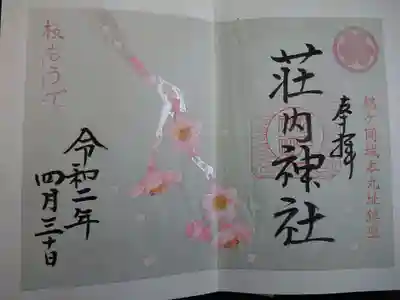 鶴ヶ岡城本丸址鎮座
奉拝
荘内神社
桜もうで
令和二年
四月三十日